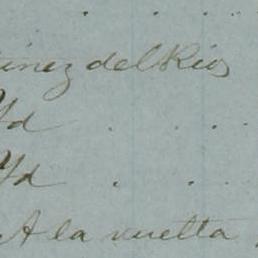 inez del Rio
Yd
Yd
A la vuelta